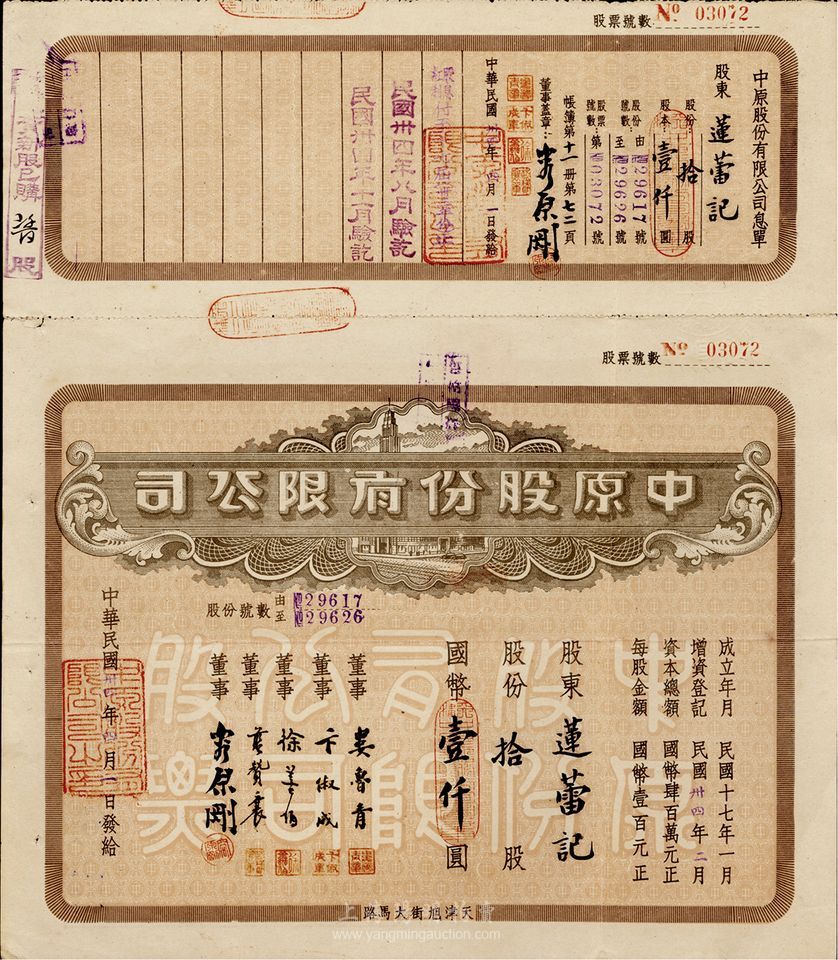 股票號數 № 03072
中原股份有限公司息單
股東 蓮蕾記
股份: 拾 股
股本: 壹仟 圓
股份號數: 由 29617 號
至 29626 號
股票號數: 第 03072 號
帳簿第十一冊第七二頁
董事蓋章:
中華民國卅四年四月一日發給
民國卅四年八月驗訖
民國卅四年十一月驗訖
股票號數 № 03072
中原股份有限公司
股份號數 由 29617
至 29626
成立年月 民國十七年一月
增資登記 民國卅四年二月
資本總額 國幣肆百萬元正
每股金額 國幣壹百元正
股東 蓮蕾記
股份 拾 股
國幣 壹仟 圓
董事 婁魯青
董事 卞俶成
董事
董事
董事
中華民國卅四年四月一日發給
中原股份有限公司股票
天津旭街大馬路
www.yangmingauction.com